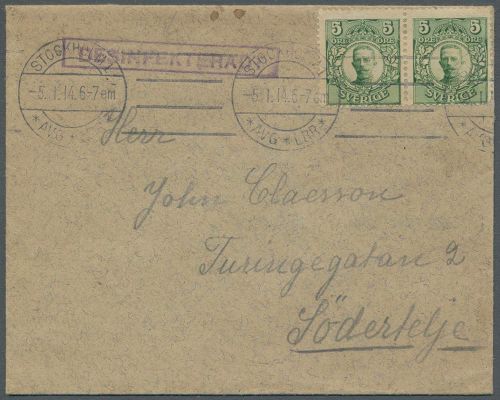 DESINFEKTERAD
STOCKHOLM
-5.1.14.6-7em
*AVG*
STOCKHOLM
-5.1.14.6-7em
*AVG*LBR*
5 5
ÖRE ÖRE
SVERIGE
5 5
ÖRE ÖRE
SVERIGE
Herr
John Claesson
Turingegatan 2
Södertelje